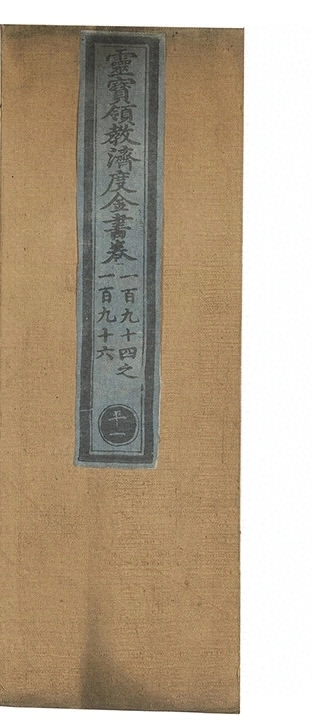 靈寶領教濟度金書卷
一百九十四之
一百九十六
平一